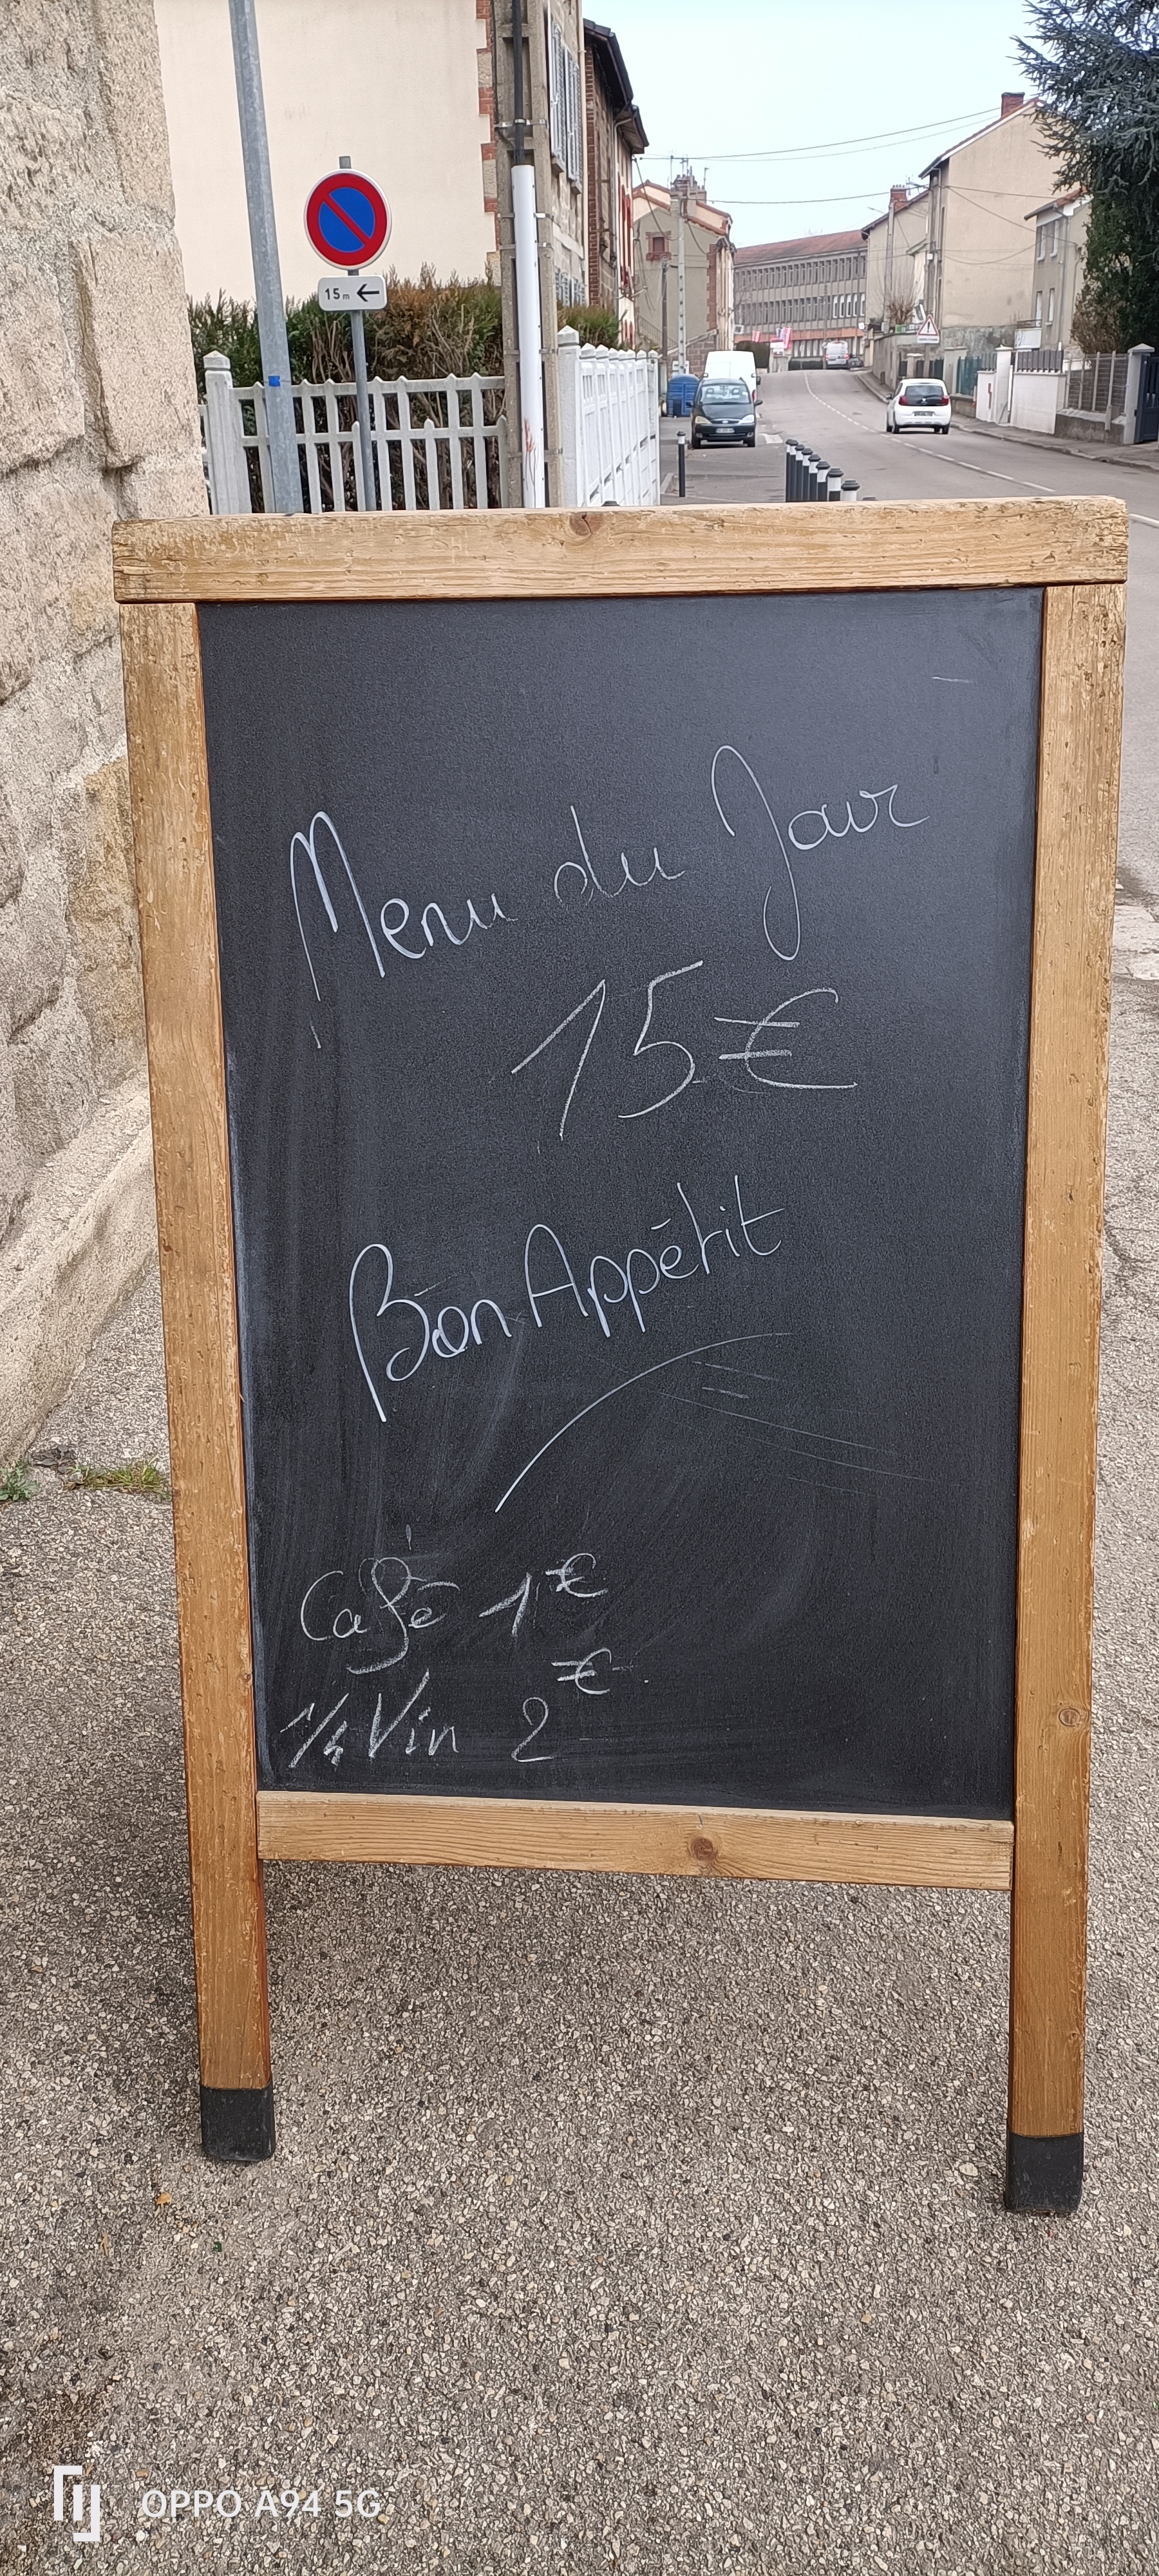 15m
Menu du Jour
15€
Bon Appétit
Café 1€
1/4 Vin 2€
OPPO A94 5G